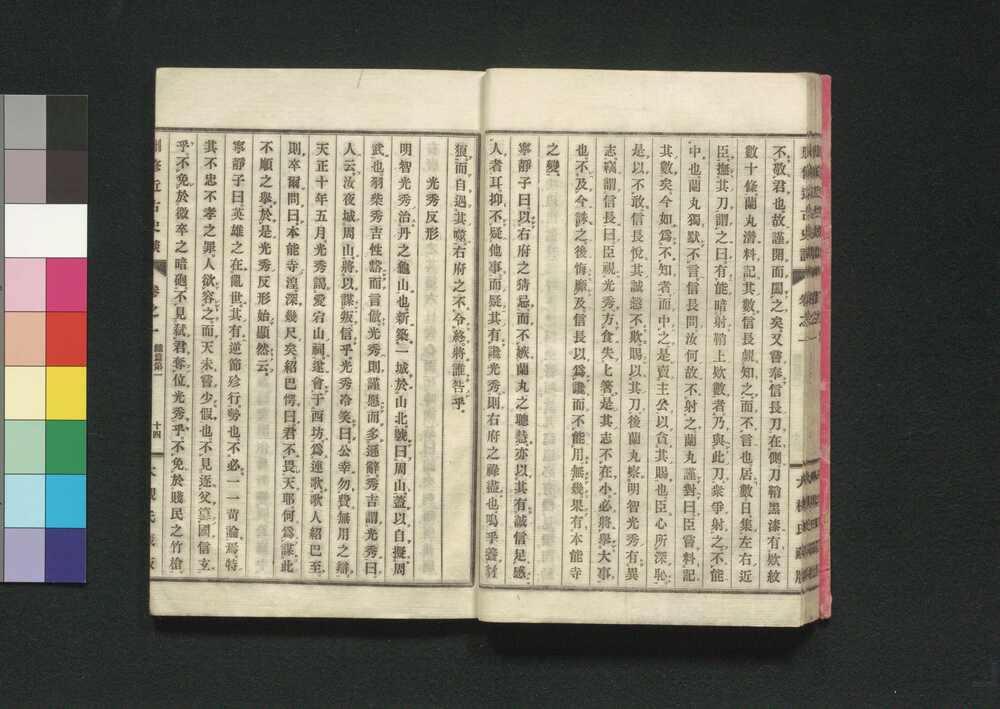 不敬君也故謹開而闔之矣又嘗奉信長刀在側刀鞘黑漆有欵紋
數十條蘭丸潛料記其數信長覘知之而不言也居數日集左右近
臣撫其刀謂之曰有能暗射鞘上欵數者乃與此刀衆爭射之不能
中也蘭丸獨默不言信長問汝何故不射之蘭丸謹對曰臣嘗料記
其數矣今如爲不知者而中之是賣主公以貪其賜也臣心所深恥
是以不敢信長悅其誠慤不欺賜以其刀後蘭丸察明智光秀有異
志竊謂信長曰臣視光秀方食失匕箸是其志不在小必將舉大事
也不及今誅之後悔靡及信長以爲讒而不能用無幾果有本能寺
之變
寧靜子曰以右府之猜忌而不嫉蘭丸之聰慧亦以其有誠信足感
人者耳抑不疑他事而疑其有讒光秀則右府之祿盡也嗚乎養豺
狼而自遇其噬右府之不令終將誰咎乎
光秀反形
明智光秀治丹之龜山也新築一城於山北號曰周山蓋以自擬周
武也羽柴秀吉性豁而言傲光秀則謹慤而多遜辭秀吉謂光秀曰
人云汝夜城周山將以謀叛信乎光秀冷笑曰公幸勿費無用之辯
天正十年五月光秀謁愛宕山祠遂會于西坊爲連歌歌人紹巴至
則卒爾問曰本能寺湟深幾尺矣紹巴愕曰君不畏天耶何爲謀此
不順之擧於是光秀反形始顯然云
寧靜子曰英雄之在亂世其有逆節殄行勢也不必一一苛論焉特
其不忠不孝之罪人欲容之而天未嘗少假也不見逐父簒國信玄
乎不免於微卒之暗砲不見弑君奪位光秀乎不免於賤民之竹槍
近古史談 卷之一 織篇第一 十四